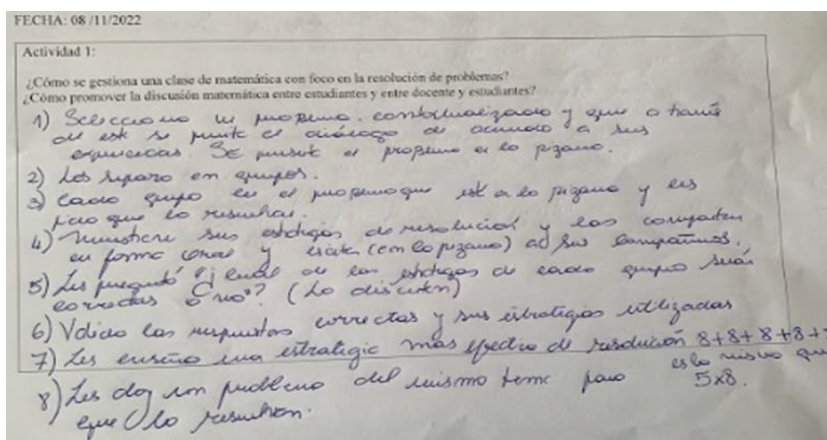 FECHA: 08 /11/2022
Actividad 1:
¿Cómo se gestiona una clase de matemática con foco en la resolución de problemas?
¿Cómo promover la discusión matemática entre estudiantes y entre docente y estudiantes?
1) Selecciono un problema contextualizado y que a través
de est se el diálogo de acuerdo a sus
experiencias. Se el problema e lo pizarra.
2) Los separo en grupos.
3) Cada grupo lee el problema que está a lo pizarra y les
pido que lo resuelvan.
4) Muestren sus de resolución y las comparten
en forma oral y escrita (en lo pizarra) a sus compañeros.
5) Les preguntó ¿cuál de las de cada grupo serán
correctas o no? (Lo discuten)
6) Valido las respuestas correctas y sus estrategias utilizadas
7) Les enseño una estrategia más efectiva de resolución 8+8+8+8+
es lo mismo que
5x8.
8) Les doy un problema del mismo tema para
que lo resuelvan.